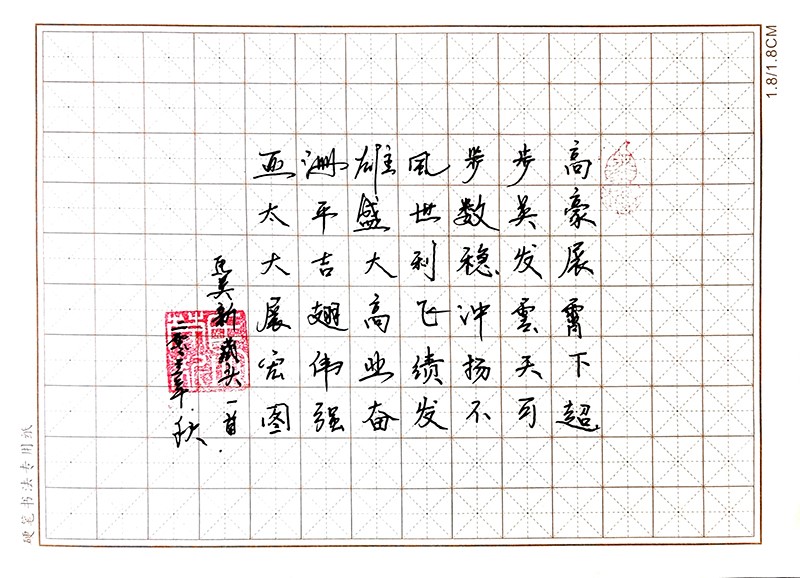 高豪展霄下超
步英发云天可
步数稳冲扬不
风世利飞绩发
雄盛大高业奋
洲平吉翅伟强
亚太大展宏图
亚英新藏头一首
二零二三年秋
硬笔书法专用纸
1.8/1.8CM